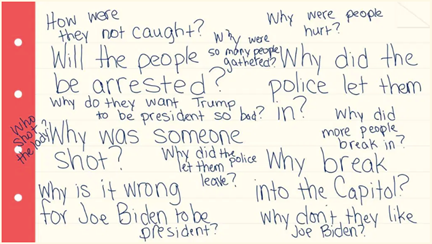 How were
they not caught?
Why were
so many people
gathered?
Why were people
hurt?
Will the people
be arrested?
Why did the
police let them
in?
Why do they want Trump
to be president so bad?
Who
shot
the lady?
Why was someone
shot?
Why did the police
let them
leave?
Why did
more people
break in?
Why break
into the Capitol?
Why is it wrong
for Joe Biden to be
president?
Why don't they like
Joe Biden?